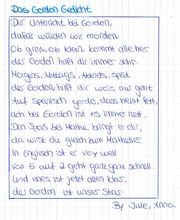 Das Gordon Gedicht
Der Unterricht bei Gordon,
dafür würden wir morden.
Ob gross, ob klein kommt alle her
der Gordon hilft dir immer sehr.
Morgens, Mittags, Abends, spät
der Gordon hilft dir weis nur geht
Auf Spanisch gordo, dass heisst fett,
ach bei Gordon ist es immer nett.
Den Spass bei Mathe bringt er dir,
da wirst du gleich zum Mathetier
In Englisch ist er very well
von 5 auf 2 geht ganz ganz schnell.
Und eines ist jetzt allen klar,
der Gordon ist unser Star.
By Julie, Anna